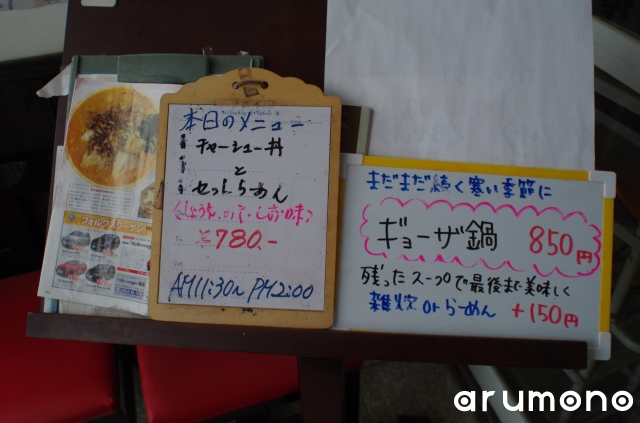 本日のメニュー
チャーシュー丼
と
セットらーめん
しょうゆ・みそ・しお味
¥780.-
AM11:30〜PM2:00
まだまだ続く寒い季節に
ギョーザ鍋 850円
残ったスープで最後まで美味しく
雑炊orらーめん +150円
arumono